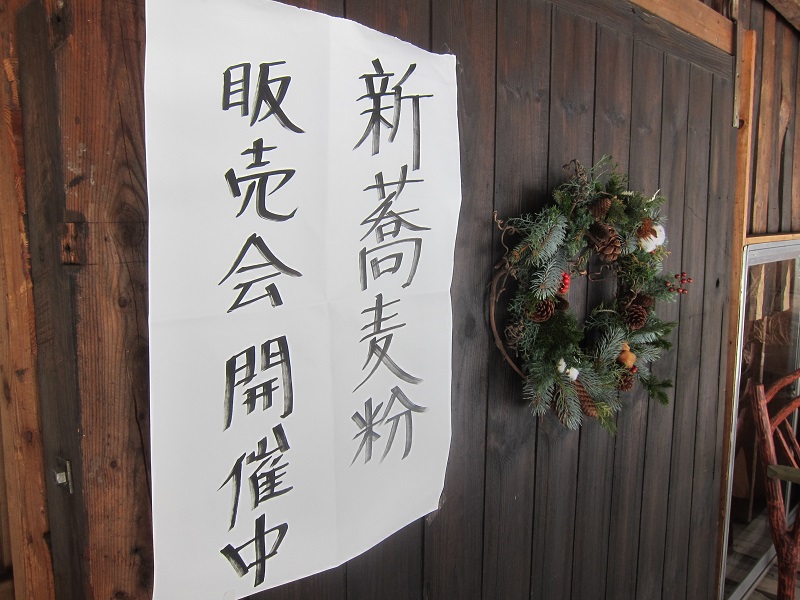 新蕎麦粉
販売会開催中